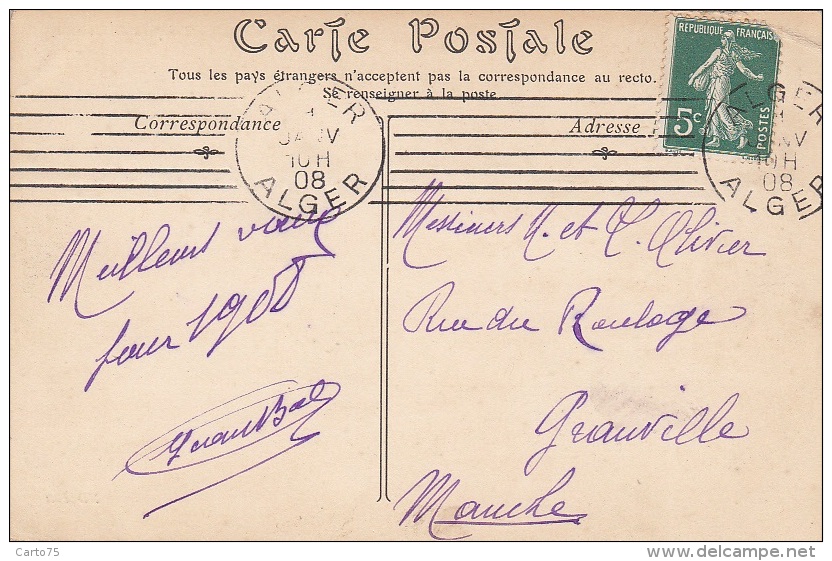 Carte Postale
Tous les pays étrangers n'acceptent pas la correspondance au recto.
Se renseigner à la poste.
Correspondance
Adresse
REPUBLIQUE FRANÇAISE
5c
POSTES
ALGER
JANV
10H
08
ALGER
ALGER
10H
08
ALGER
Meilleurs vœux
pour 1908
Messieurs H. et C. Olivier
Rue du Roulage
Granville
Manche
Carto75
delcampe.net